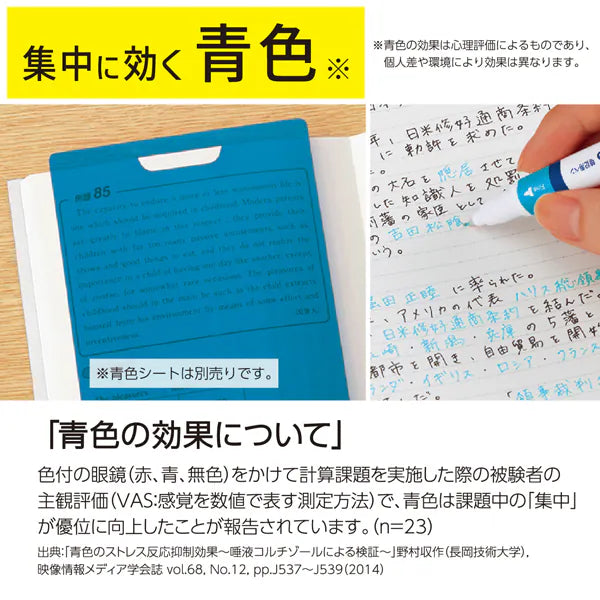 集中に効く 青色※
※青色の効果は心理評価によるものであり、
個人差や環境により効果は異なります。
例題 85
The capacity to endure a more or less monotonous life is
one which should be acquired in childhood. Modern parents
are greatly to blame in this respect; they provide their
children with far too many passive amusements, such as
shows and good things to eat, and they do not realize the
importance to a child of having one day like another, except,
of course, for somewhat rare occasions. The pleasures of
childhood should in the main be such as the child extracts
himself from his environment by means of some effort and
inventiveness.
日米修好通商条約
に勅許を求めた。
の大名を隠居させて
した知識人を処罰
藩の家臣として
の吉田松陰
いう。
堀田正睦に率られた。
、アメリカの代表ハリス総領事
日米修好通商条約を結んだ。
崎・新潟・兵庫の5港と
都市を開き、自由貿易を開始
ランダ・イギリス・ロシア・フランス
た。「領事裁判
※青色シートは別売りです。
「青色の効果について」
色付の眼鏡(赤、青、無色)をかけて計算課題を実施した際の被験者の
主観評価(VAS:感覚を数値で表す測定方法)で、青色は課題中の「集中」
が優位に向上したことが報告されています。(n=23)
出典:「青色のストレス反応抑制効果~唾液コルチゾールによる検証~」野村収作(長岡技術大学),
映像情報メディア学会誌 vol.68, No.12, pp.J537~J539(2014)